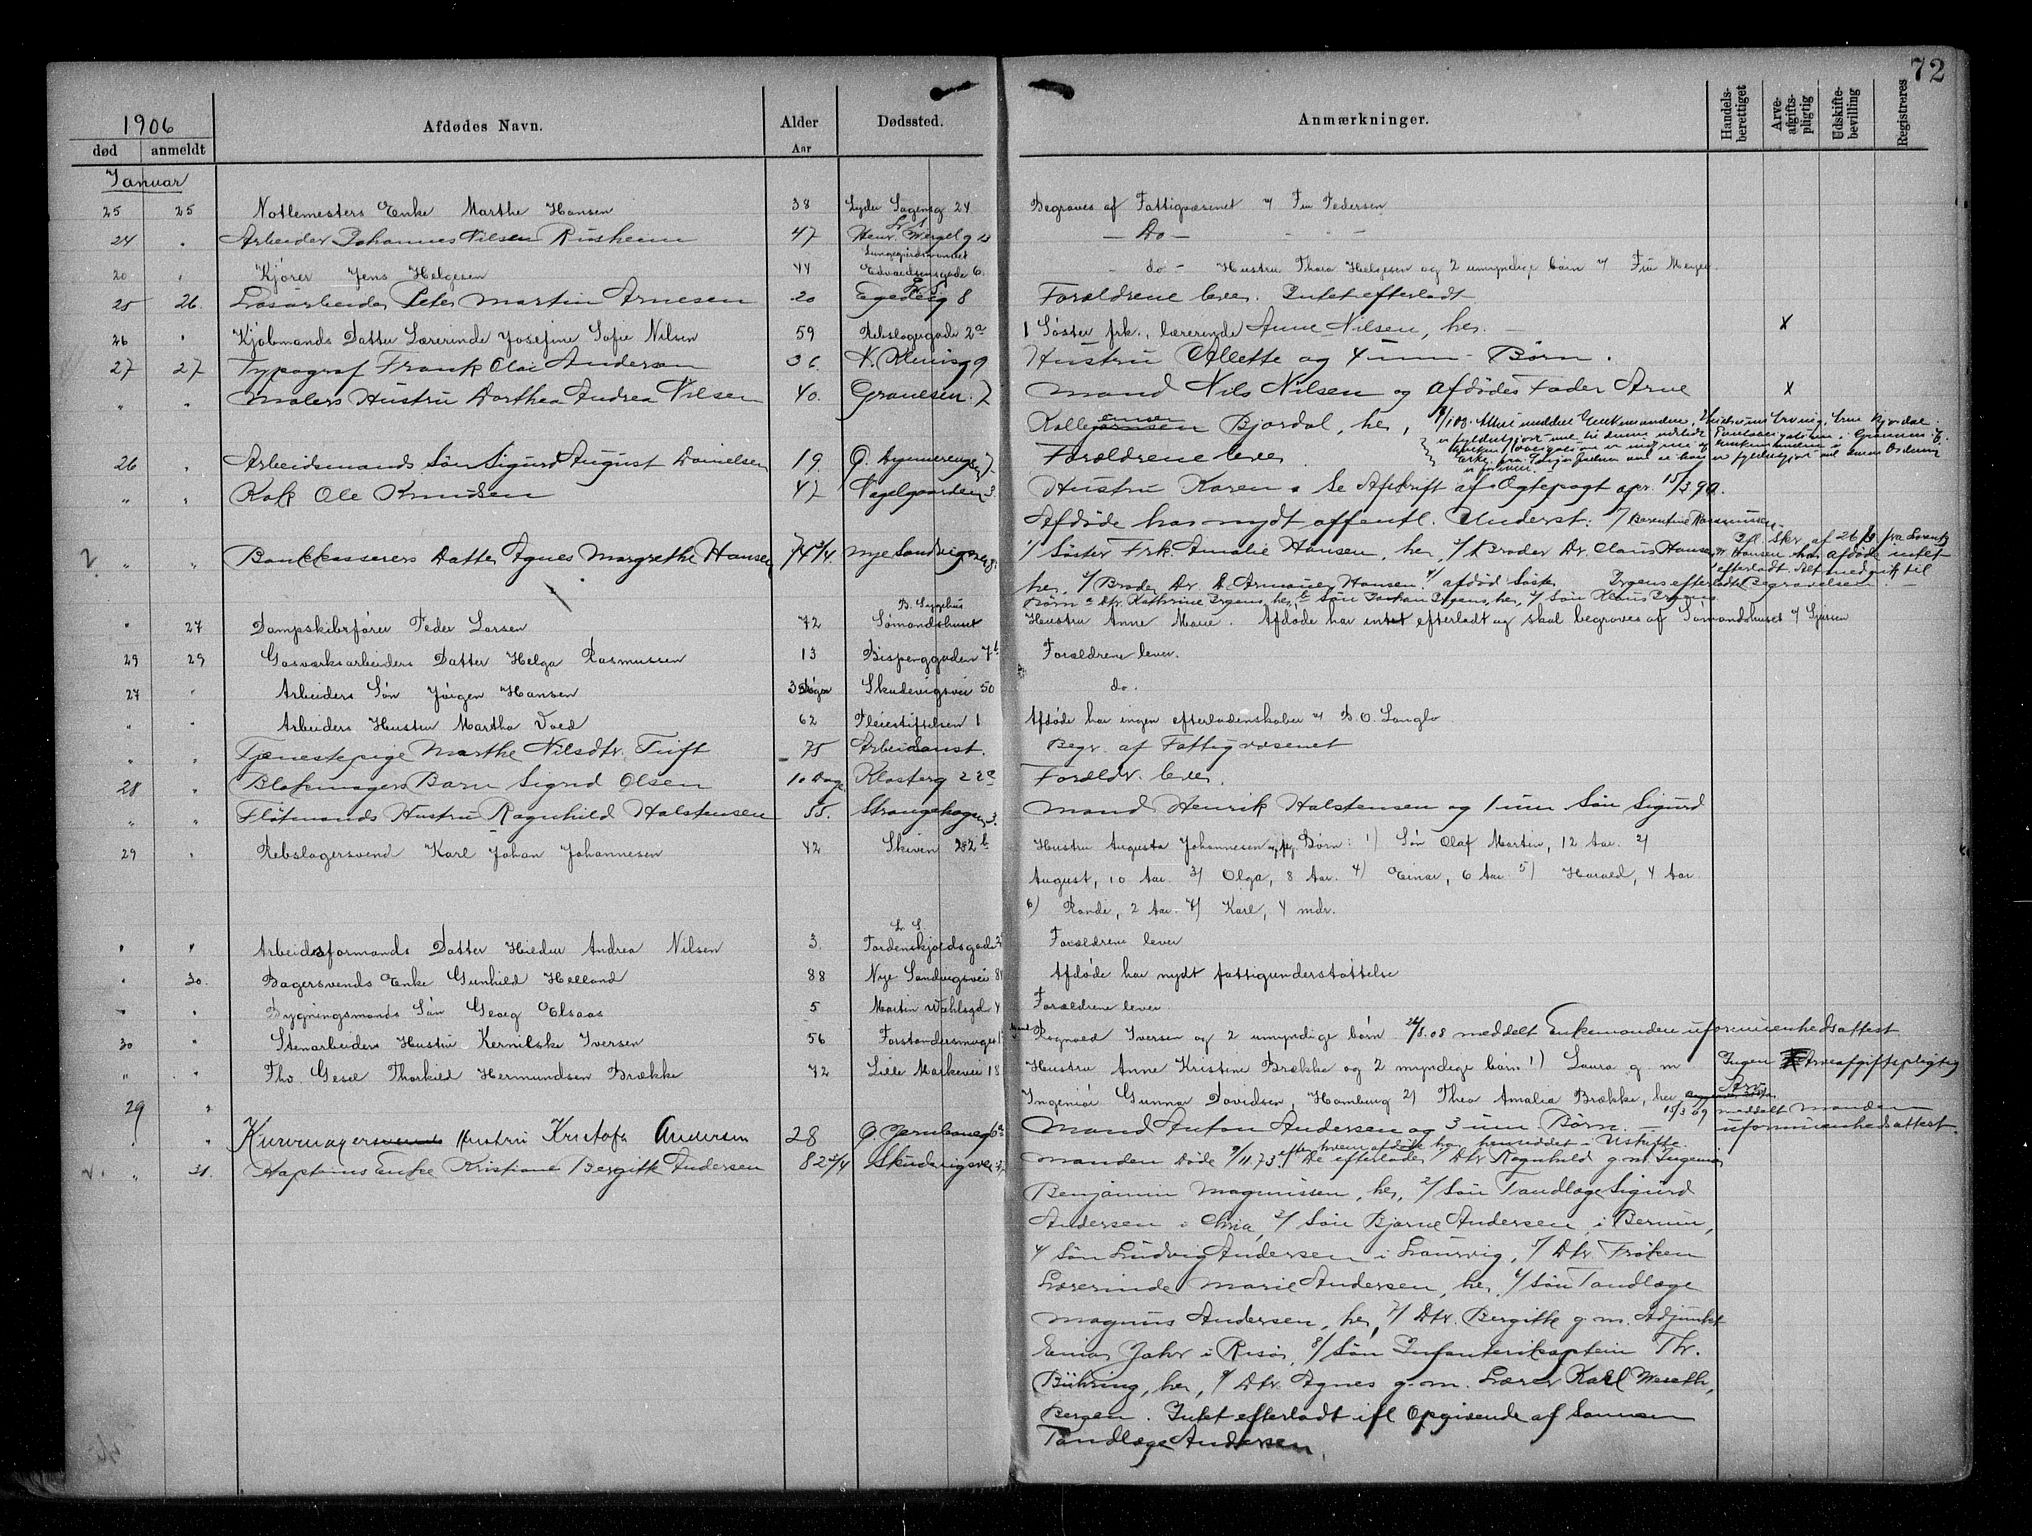 72
1906
død anmeldt Afdødes Navn. Alder Aar Dødssted. Anmærkninger. Handels-berettiget Arve-afgifts-pligtig Udskifte-bevilling Registreres
Januar
25 25 Notlemesters Enke Marthe Hansen 38 Lyder Sagensg 24 Begraves af Fattigvæsenet v/ Fru Pedersen
L. S.
24 " Arbeider Johannes Nilsen 47 Henr. Wergel g — Do —
Lungegårdshospitalet
20 " Kjører Jens Helgesen 44 Edvardsensgade 6. — do — Hustru Thora Helgesen og 2 umyndige børn v/ Fru Meyer
25 26. Løsarbeider Peter Martin Arnesen 20 Egedesg 8 Forældrene lever. Intet efterladt
26 " Kjøbmands Datter Lærerinde Josefine Sofie Nilsen 59 Rebslagergade 2a 1 Søster frk. lærerinde Anne Nilsen, her. — x
27 27 Typograf Frank Olai Anderson 36. N. g 9 Hustru Allette og 4 um - Børn.
" " Malers Hustru Dorthea Andrea Nilsen 40. Granesen. 7 Mand Nils Nilsen og Afdødes Fader Arne x
Bjordal, her,
26 " Arbeidsmands Søn Sigurd August Danielsen 19. Ø. Forældrene lever
" " Kok Ole Knudsen 47 Nagelgaarden 3. Hustru Karen. Se Afskrift af Ægtepagt apr. 15/3 90.
Afdøde har nydt offentl. Underst. v/ Berentine Rasmussen.
" " Bankkasserers Datter Agnes Margrethe Hansen 74 3/4. Nye Sandvigsvei 1/ Søster Frk. Amalie Hansen, her, 2/ Broder Dr. Claus Hansen
her, 3/ Broder Dr. G Armauer Hansen 4/ afdød Søster Irgens efterladte
Børn a Dtr. Kathrine Irgens, her, b Søn Johan Irgens, her, c/ Søn Klaus Irgens
Ifl. Skr. af 26/ fra Lorentz
W. Hansen har afdøde intet
efterladt. Alt medgik til
Begravelsen. —
B. Sygehus
" 27 Dampskibsfører Peder Larsen 72 Sømandshuset Hustru Anne Marie. Afdøde har intet efterladt og skal begraves af Sømandshuset v/
29 29 Gasværksarbeiders Datter Helga Rasmussen 13 Bispenggaden 7b Forældrene lever.
27 " Arbeiders Søn Jørgen Hansen Skudevigsvei 50 do.
" " Arbeiders Hustru Martha Voed 62 Pleiestiftelsen 1 Afdøde har ingen efterladenskaber v/ B. O. Langlo
" " Tjenestepige Marthe Nilsdtr. Tuft 75 Arbeidsanst. Begr. af Fattigvæsenet
28 " Blokmagers Barn Sigrid Olsen 10 Dage Klosterg 22a Forældr. lever.
" " Fløtmands Hustru Ragnhild Halstensen 55. Strangehagen 3. Mand Henrik Halstensen og 1 um Søn Sigurd
29 " Rebslagersvend Karl Johan Johannesen 42 Skiven 22b Hustru Augusta Johannesen og Børn: 1) Søn Olaf Martin, 12 Aar. 2)
August, 10 Aar. 3) Olga, 8 Aar. 4) Einar, 6 Aar 5) Harald, 4 Aar
6) Randi, 2 Aar. 7) Karl, 4 mdr.
L. S
" " Arbeidsformands Datter Andrea Nilsen 3. Tordenskjoldsgade Forældrene lever
" 30. Bagersvends Enke Gunhild Helland 88 Nye Sandvigsvei Afdøde har nydt fattigunderstøttelse
" " Bygningsmands Søn Georg Elsaas 5 Martin Wahlsgd 4 Forældrene lever
30 " Stenarbeiders Hustru Iversen 56 Forstandersmuget Mand Rognald Iversen og 2 umyndige børn 26/8.08 meddelt Enkemanden uformuenhedsattest
" " Fhv Gesel Thorkild Hermundsen Brække 72 Lille Markevei 18 Hustru Anne Kristine Brække og 2 myndige børn 1) Laura g. m Ingen Arveafgiftspligtig
Ingeniør Gunnar Davidsen, Hamburg 2) Thea Amalia Brække, her Arv
29 " Kurvmager Hustru Kristofa Andersen 28 Ø. Mand Anton Andersen og 3 um Børn. — 15/3 09 meddelt manden uformuenhedsattest.
" 31. Kapteins Enke Kristiane Bergitte Andersen 82 3/4 Skudevigsvei Manden Døde 9/11.73, efter hvem afdøde har hensiddet i Uskifte.
De efterlader 1/ Dtr. Ragnhild g. m. Ingeniør
Benjamin Magnussen, her, 2/ Søn Tandlæge Sigurd
Andersen i Chria, 3/ Søn Bjarne Andersen i Berum,
4 Søn Ludvig Andersen i Laurvig, 5/ Dtr. Frøken
Lærerinde Marie Andersen, her, 6/ Søn Tandlæge
Magnus Andersen, her, 7/ Dtr. Bergitte g. m. Adjunkt
Einar Jahr i Risør, 8/ Søn Infanterikaptein Th.
Bühring, her, 9 Dtr. Agnes g. m. Lærer Karl Wereth,
Bergen. Intet efterladt ifl Opgivende af Sønnen
Tandlæge Andersen.